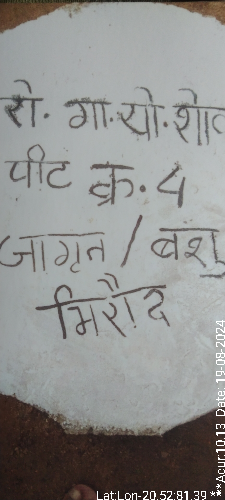 रो. गा. यो. शेल
पीट क्र. 4
जागृत / बशु
मिरौद
Lat:Lon-20.52:81.39
**Acur:10.13, Date: 19-08-2024